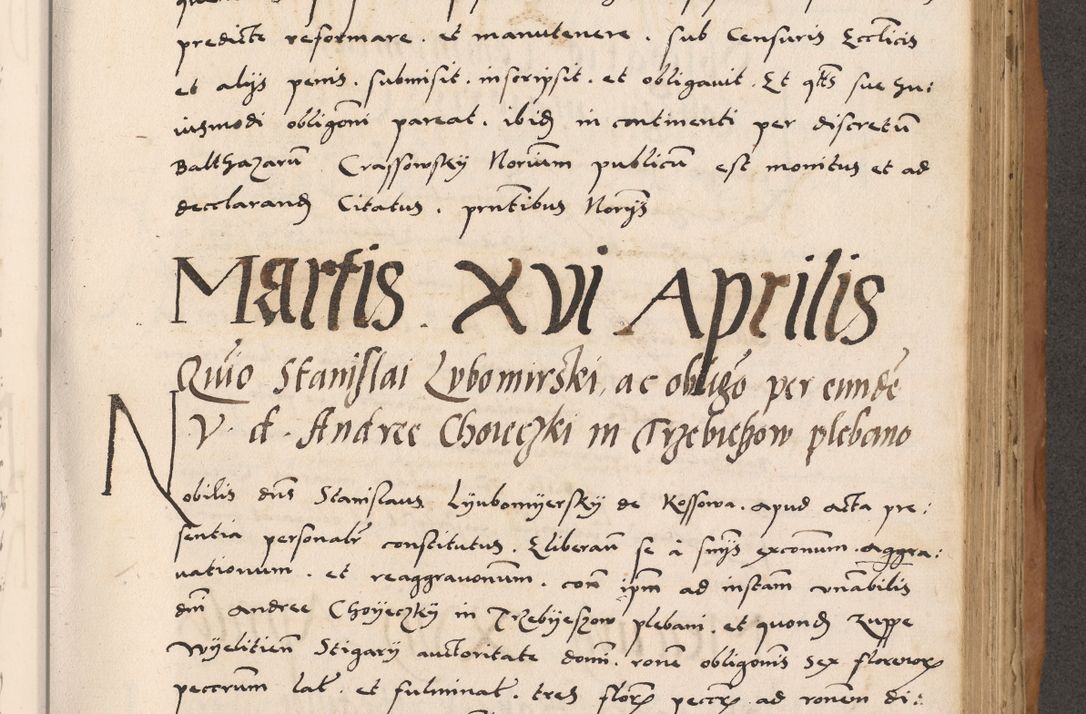 predicte reformare . et manutenere . sub Censuris Ecclicis
et alijs penis . submisit . inscripsit . et obligavit . Et qts sue hu:
iusmodi obligoni pareat . ibid in continenti per discretu
Balthazaru Crassowsky Norium publicu est monitus et ad
decclarand Citatus . prntibus Norijs
Martis . XVI Aprilis
Quio Stanislai Lubomirski, ac obligo per eunde
V . d . Andree Choieczki in Trzebieszow plebano
Nobilis dns Stanislaus Lyubomyersky de Kossowa . apud acta pre:
sentia personalr constitutus . Eliberan se a snijs exconum . aggra:
vationum . et reaggravonum . con ipm ad instam vnabilis
dni Andree Choyeczky in Trzebyeszow plebani . et quond zuppe
Wyelitien Stigarij auctoritate domi . rone obligonis sex florenor
peccrum lat . et fulminat . tres flor peccr ad ronem di: